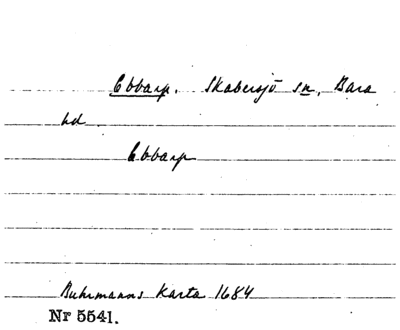 Ebbarp. Skabersjö sn, Bara
hd.
Ebbarp
Buhrmanns Karta 1684
Nr 5541.